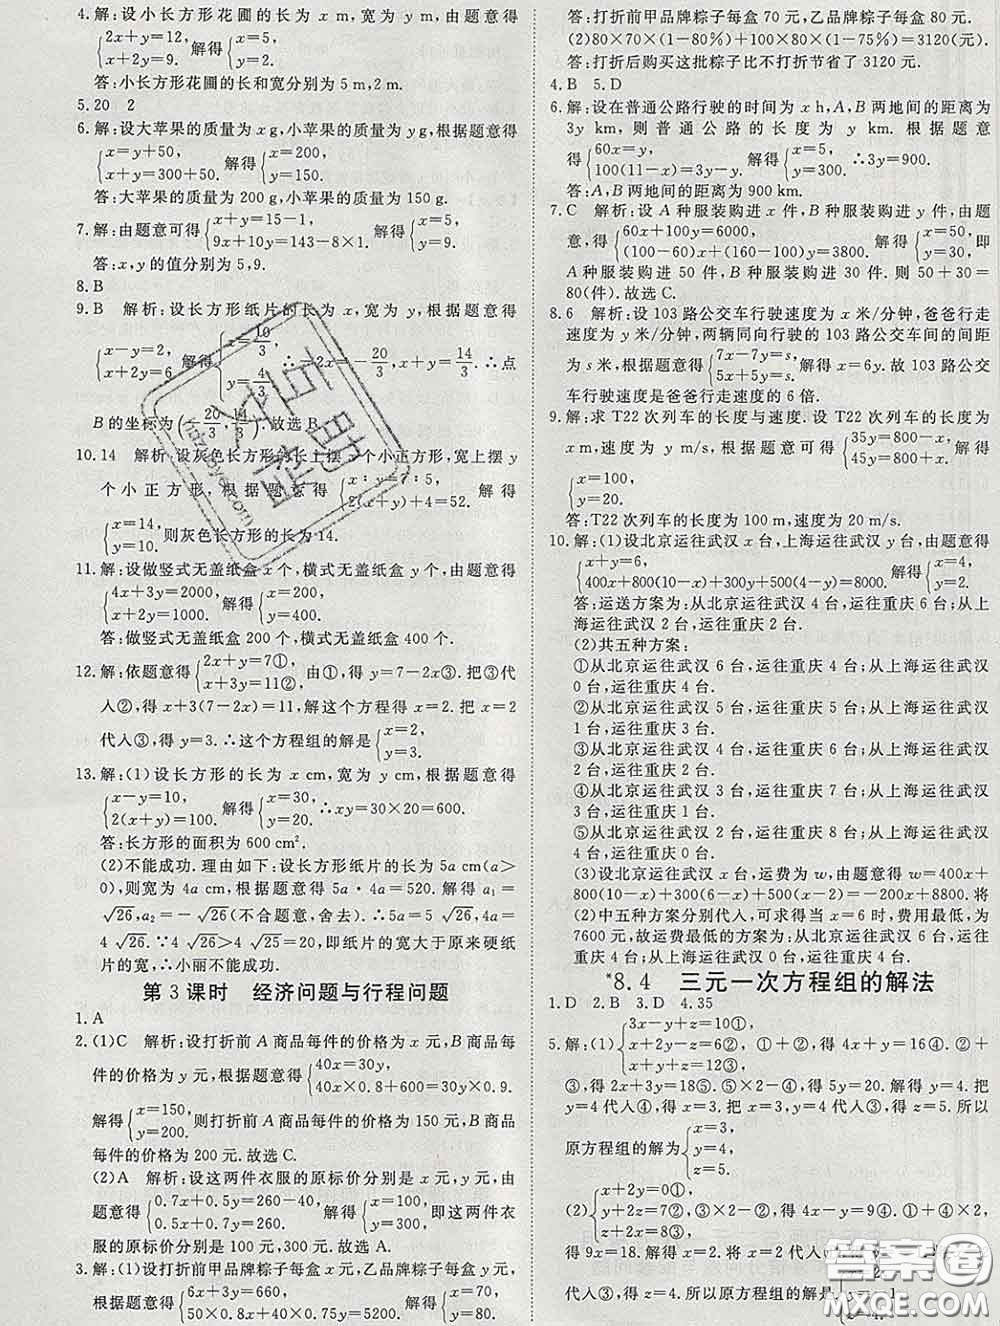 4.解:设小长方形花圃的长为 x m,宽为 y m,由题意得
{2x+y=12, x+2y=9. 解得{x=5, y=2.
答:小长方形花圃的长和宽分别为 5 m,2 m.
5.20 2
6.解:设大苹果的质量为 x g,小苹果的质量为 y g,根据题意得
{x=y+50, x+y=300+50. 解得{x=200, y=150.
答:大苹果的质量为 200 g,小苹果的质量为 150 g.
7.解:由题意可得{x+y=15-1, 9x+10y=143-8×1. 解得{x=5, y=9.
答:x,y 的值分别为 5,9.
8.B
9.B 解析:设长方形纸片的长为 x,宽为 y,根据题意得
{x-y=2, x+2y=6 解得{x=10/3, y=4/3. ∴-2x=-20/3,x+y=14/3.∴点
B 的坐标为(-20/3,14/3).故选 B.
10.14 解析:设灰色长方形的长上摆 x 个小正方形,宽上摆 y
个小正方形,根据题意得{x:y=7:5, 2(x+y)+4=52. 解得
{x=14, y=10. 则灰色长方形的长为 14.
11.解:设做竖式无盖纸盒 x 个,横式无盖纸盒 y 个,由题意得
{4x+3y=2000, x+2y=1000. 解得{x=200, y=400.
答:做竖式无盖纸盒 200 个,横式无盖纸盒 400 个.
12.解:依题意得{2x+y=7①, x+3y=11②, 由①,得 y=7-2x③. 把③代
入②,得 x+3(7-2x)=11,解这个方程得 x=2.把 x=2
代入③,得 y=3.∴这个方程组的解是{x=2, y=3.
13.解:(1)设长方形的长为 x cm,宽为 y cm,根据题意得
{x-y=10, 2(x+y)=100. 解得{x=30, y=20. ∴xy=30×20=600.
答:长方形的面积为 600 cm².
(2)不能成功.理由如下:设长方形纸片的长为 5a cm(a>
0),则宽为 4a cm,根据题意得 5a·4a=520. 解得 a₁=
√26,a₂=-√26(不合题意,舍去).∴5a=5√26,4a=
4√26.∵4√26>4√25=20,即纸片的宽大于原来硬纸
片的宽,∴小丽不能成功.
第 3 课时 经济问题与行程问题
1.A
2.(1)C 解析:设打折前 A 商品每件的价格为 x 元,B 商品每
件的价格为 y 元,根据题意得{40x=30y, 40x×0.8+600=30y×0.9.
解得{x=150, y=200. 则打折前 A 商品每件的价格为 150 元,B 商品
每件的价格为 200 元.故选 C.
(2)A 解析:设这两件衣服的原标价分别是 x 元,y 元,根据
题意得{0.7x+0.5y=260-40, 0.5x+0.7y=260. 解得{x=100, y=300. 即这两件衣
服的原标价分别是 100 元,300 元.故选 A.
3.解:(1)设打折前甲品牌粽子每盒 x 元,乙品牌粽子每盒 y 元,
根据题意得{6x+3y=660, 50×0.8x+40×0.75y=5200. 解得{x=70, y=80.
答:打折前甲品牌粽子每盒 70 元,乙品牌粽子每盒 80 元.
(2)80×70×(1-80%)+100×80×(1-75%)=3120(元).
答:打折后购买这批粽子比不打折节省了 3120 元.
4.B 5.D
6.解:设在普通公路行驶的时间为 x h,A,B 两地间的距离为
3y km,则普通公路的长度为 y km.根据题意
得{60x=y, 100(11-x)=3y-y. 解得{x=5, y=300. ∴3y=900.
答:A,B 两地间的距离为 900 km.
7.C 解析:设 A 种服装购进 x 件,B 种服装购进 y 件,由题
意,得{60x+100y=6000, (100-60)x+(160-100)y=3800. 解得{x=50, y=30, 即
A 种服装购进 50 件,B 种服装购进 30 件.则 50+30=
80(件).故选 C.
8.6 解析:设 103 路公交车行驶速度为 x 米/分钟,爸爸行走
速度为 y 米/分钟,两辆同向行驶的 103 路公交车间的间距
为 s 米,根据题意得{7x-7y=s, 5x+5y=s. 解得 x=6y.故 103 路公交
车行驶速度是爸爸行走速度的 6 倍.
9.解:求 T22 次列车的长度与速度.设 T22 次列车的长度为
x m,速度为 y m/s,根据题意可得{35y=800-x, 45y=800+x. 解得
{x=100, y=20.
答:T22 次列车的长度为 100 m,速度为 20 m/s.
10.解:(1)设北京运往武汉 x 台,上海运往武汉 y 台,由题意得
{x+y=6, 400x+800(10-x)+300y+500(4-y)=8000. 解得{x=4, y=2.
答:运送方案为:从北京运往武汉 4 台,运往重庆 6 台;从上
海运往武汉 2 台,运往重庆 2 台.
(2)共五种方案:
①从北京运往武汉 6 台,运往重庆 4 台;从上海运往武汉
0 台,运往重庆 4 台.
②从北京运往武汉 5 台,运往重庆 5 台;从上海运往武汉
1 台,运往重庆 3 台.
③从北京运往武汉 4 台,运往重庆 6 台;从上海运往武汉
2 台,运往重庆 2 台.
④从北京运往武汉 3 台,运往重庆 7 台;从上海运往武汉
3 台,运往重庆 1 台.
⑤从北京运往武汉 2 台,运往重庆 8 台;从上海运往武汉
4 台,运往重庆 0 台.
(3)设北京运往武汉 x 台,运费为 w,由题意得 w=400x+
800(10-x)+300(6-x)+500(x-2)=-200x+8800.将
(2)中五种方案分别代入,可求得当 x=6 时,费用最低,为
7600 元,故运费最低的方案为:从北京运往武汉 6 台,运往
重庆 4 台;从上海运往武汉 0 台,运往重庆 4 台.
*8.4 三元一次方程组的解法
1.D 2.B 3.D 4.35
5.解:(1){3x-y+z=10①, x+2y-z=6②, x+y+z=12③, ①+②,得 4x+y=16④.②+
③,得 2x+3y=18⑤.⑤×2-④,得 5y=20.解得 y=4.把
y=4 代入④,得 x=3.把 x=3,y=4 代入③,得 z=5.所以
原方程组的解为{x=3, y=4, z=5.
(2){x+2y=0①, 2x+2y+z=7②, z+2x=8③, ③×2-②,得 4x-y=9④.①+④×2,
得 9x=18.解得 x=2.将 x=2 代入
代入③,得 z=4.所以原方程组的解是
答案圈
MXQE.COM